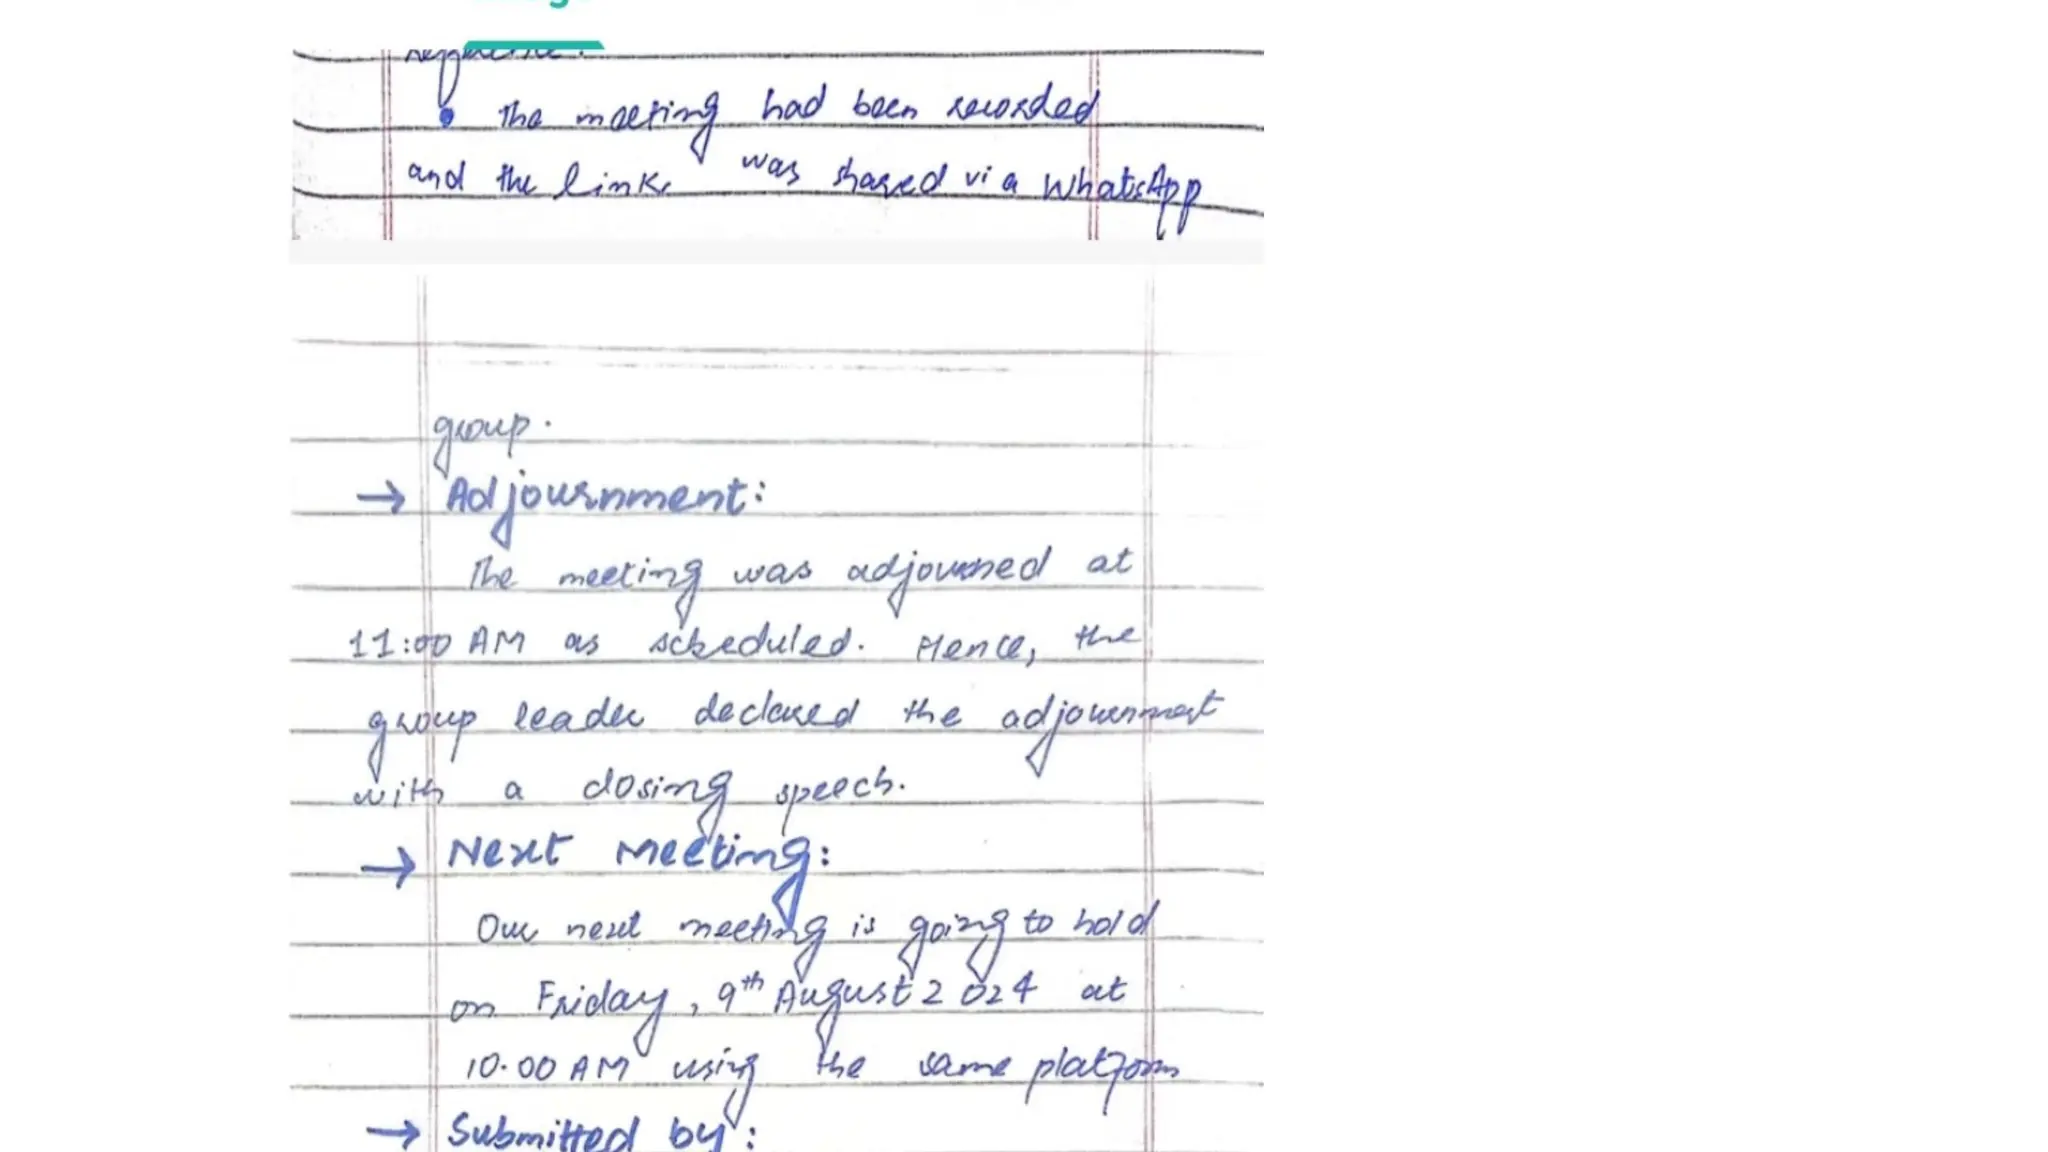 • The meeting had been recorded
and the link was shared via WhatsApp
group.
→ Adjournment:
The meeting was adjourned at
11:00 AM as scheduled. Hence, the
group leader declared the adjournment
with a closing speech.
→ Next Meeting:
Our next meeting is going to hold
on Friday, 9th August 2024 at
10.00 AM using the same platform
→ Submitted by: